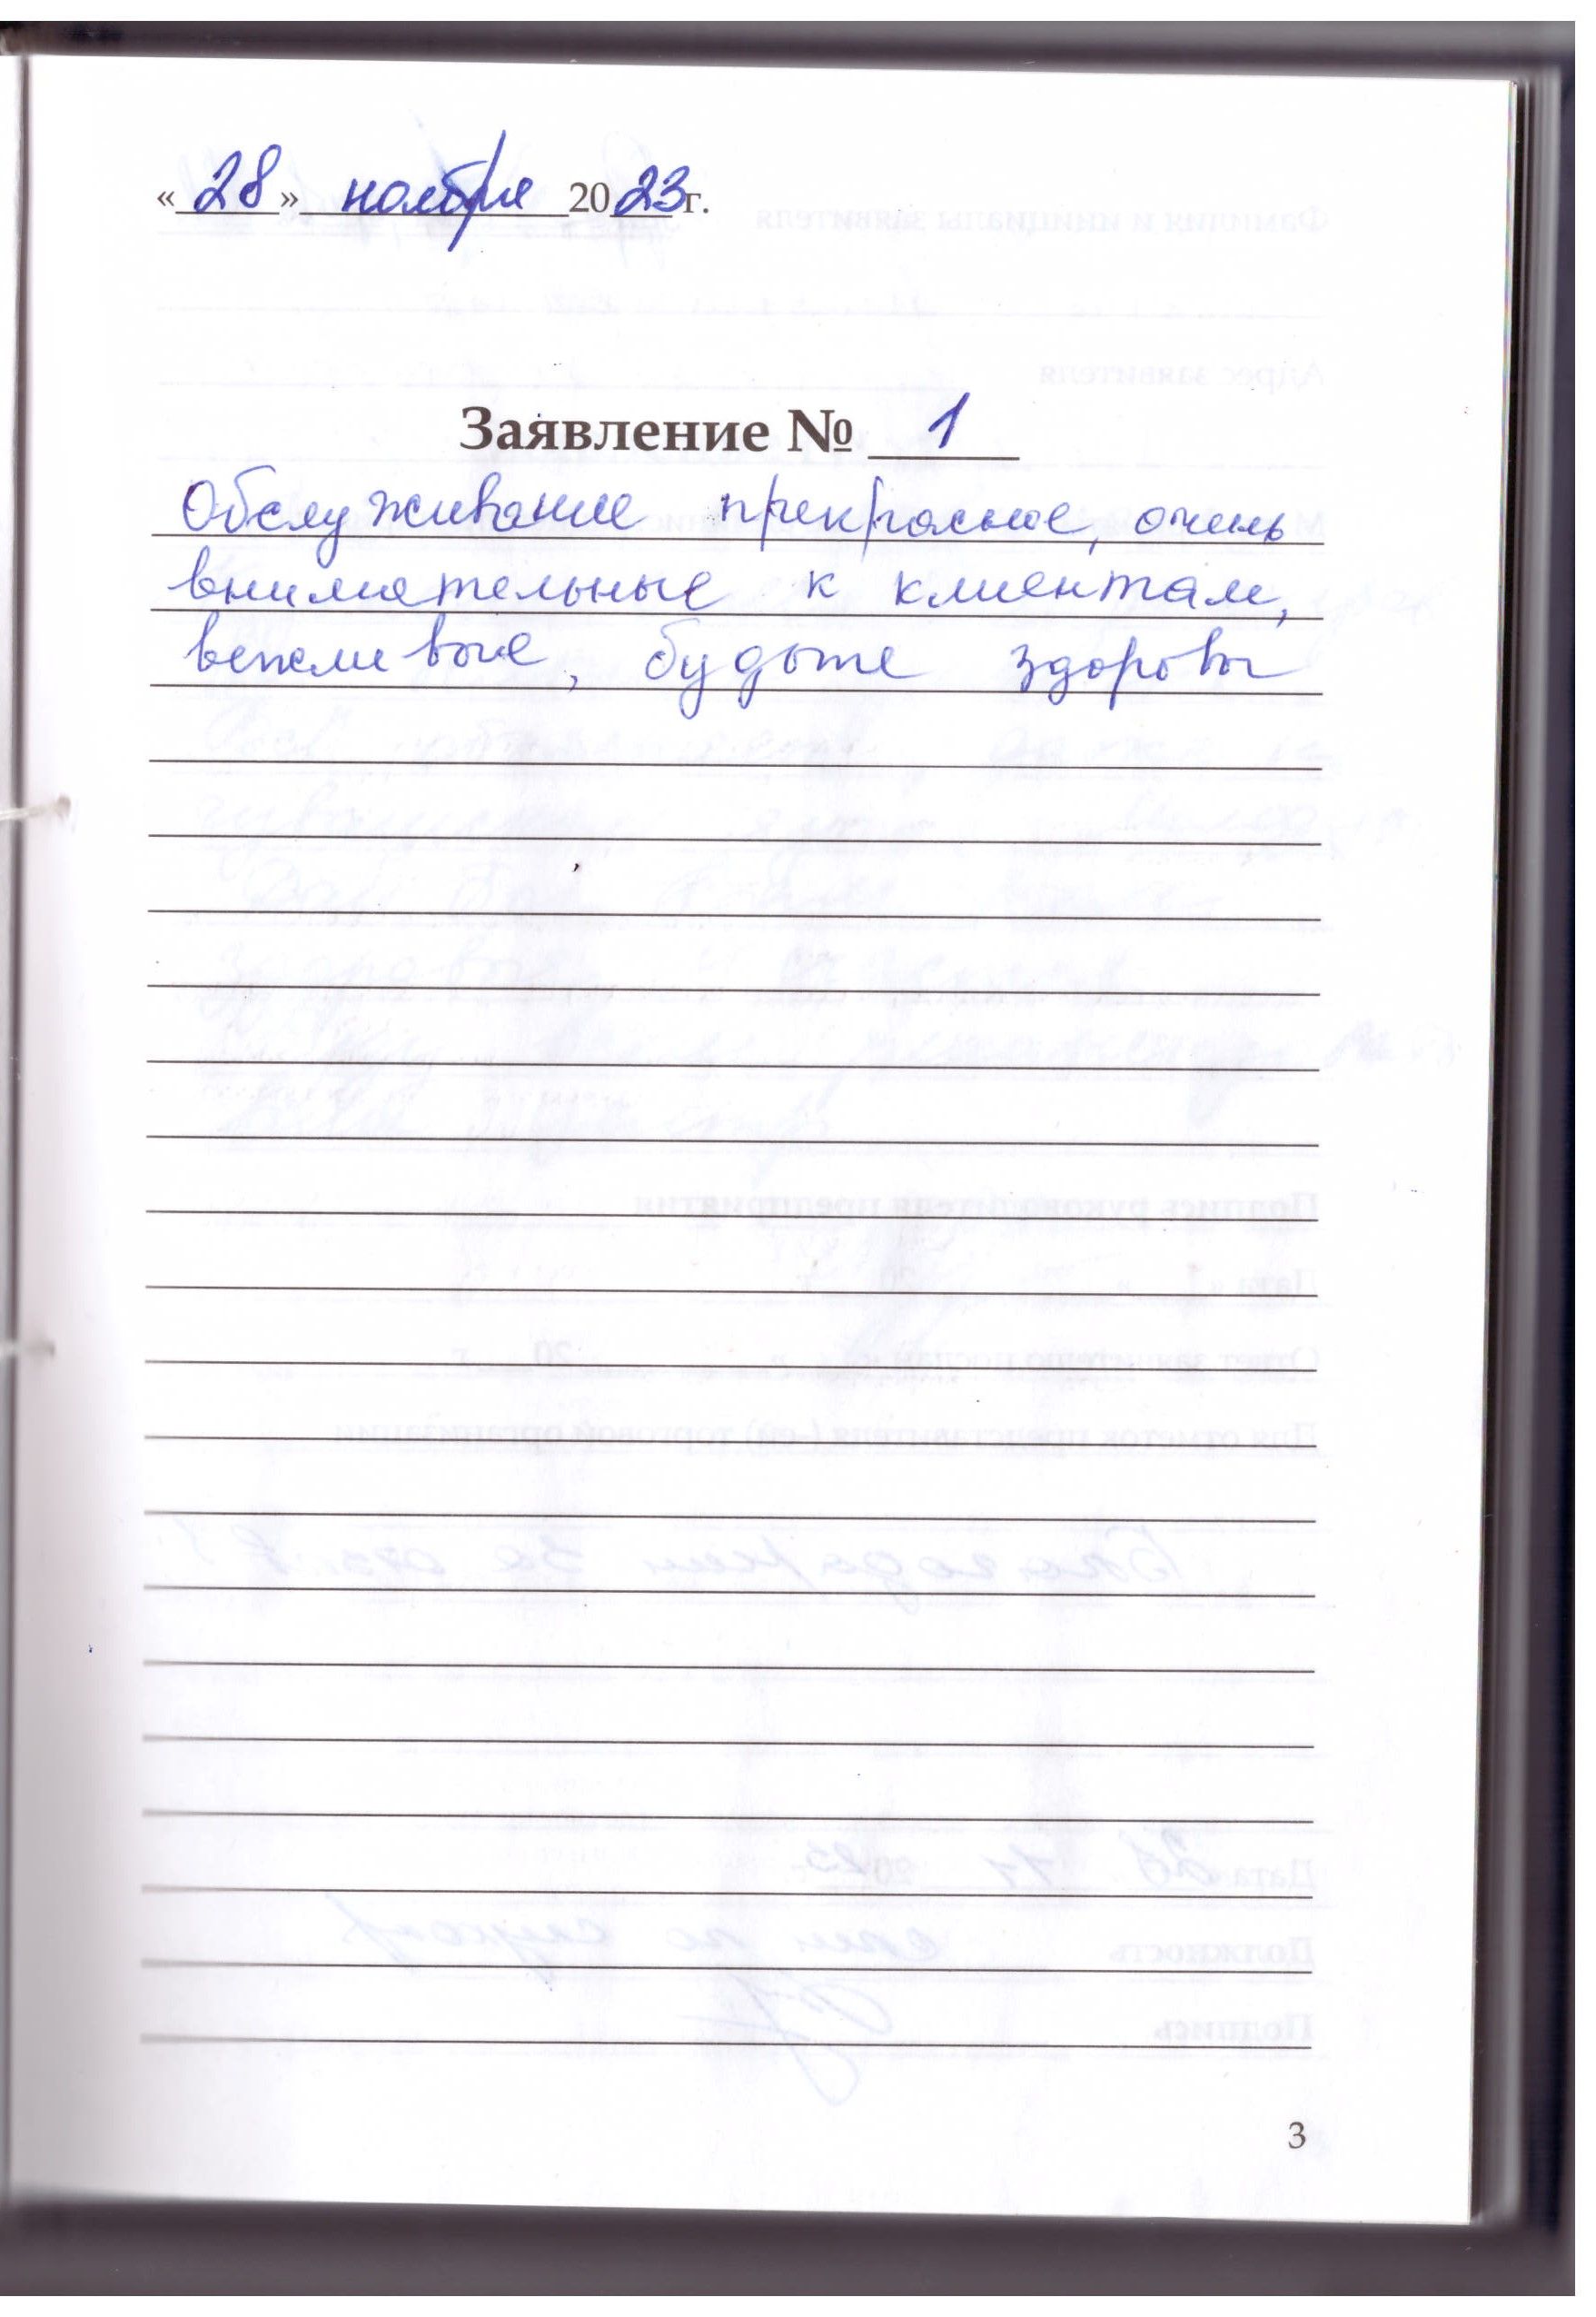 «28» ноября 2023 г.
Заявление № 1
Обслуживание прекрасное, очень
внимательные к клиентам,
вежливые, будьте здоровы
3